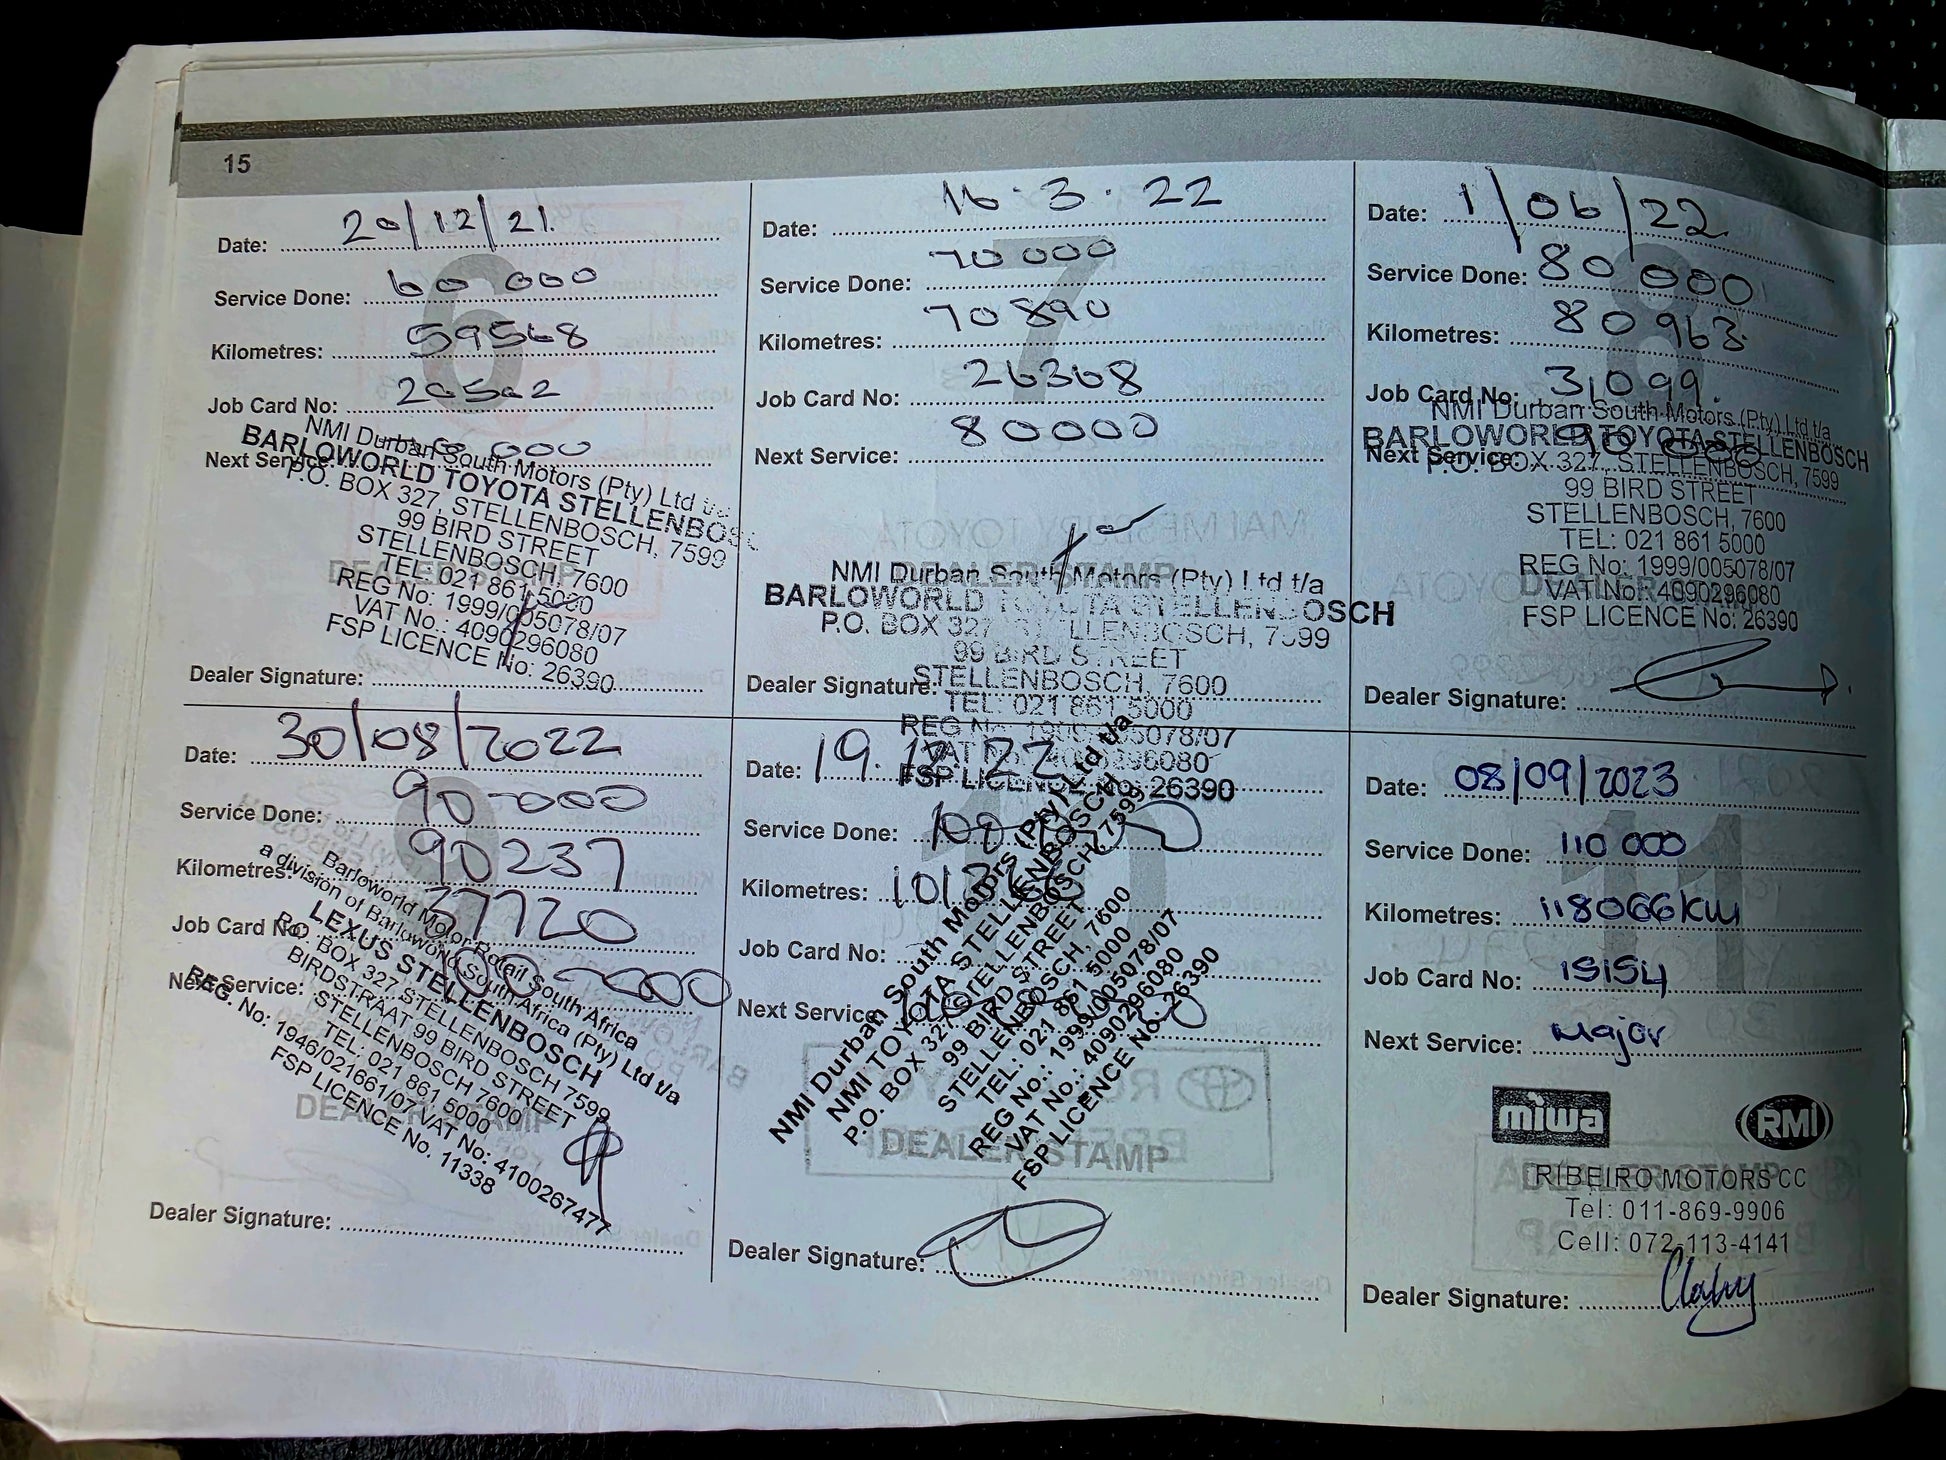 15
Date: 20/12/21.
Service Done: 60 000
Kilometres: 59568
Job Card No: 20502
Next Service: 000
NMI Durban South Motors (Pty) Ltd t/a
BARLOWORLD TOYOTA STELLENBOSC
P.O. BOX 327, STELLENBOSCH, 7599
99 BIRD STREET
STELLENBOSCH, 7600
TEL: 021 861 5000
REG No: 1999/005078/07
VAT No.: 4090296080
FSP LICENCE No: 26390
DEALER STAMP
Dealer Signature:
Date: 16.3.22
7
Service Done: 70 000
Kilometres: 70890
Job Card No: 26368
Next Service: 80000
NMI Durban South Motors (Pty) Ltd t/a
DEALER STAMP
BARLOWORLD TOYOTA STELLENBOSCH
P.O. BOX 327, STELLENBOSCH, 7599
99 BIRD STREET
STELLENBOSCH, 7600
Dealer Signature:
TEL: 021 861 5000
REG No: 1999/005078/07
VAT No: 4090296080
FSP LICENCE No: 26390
Date: 1/06/22
8
Service Done: 80 000
Kilometres: 80963
Job Card No: 31099.
Next Service: 90 000
NMI Durban South Motors (Pty) Ltd t/a
BARLOWORLD TOYOTA STELLENBOSCH
P.O. BOX 327, STELLENBOSCH, 7599
99 BIRD STREET
STELLENBOSCH, 7600
TEL: 021 861 5000
REG No: 1999/005078/07
VAT No: 4090296080
FSP LICENCE No: 26390
Dealer Signature:
Date: 30/08/2022
9
Service Done: 90-000
Kilometres: 90237
Job Card No: 37720
Next Service: 100-000
Barloworld Motor Retail South Africa
a division of Barloworld South Africa (Pty) Ltd t/a
LEXUS STELLENBOSCH
P.O. BOX 327 STELLENBOSCH 7599
BIRDSTRAAT 99 BIRD STREET
STELLENBOSCH 7600
TEL: 021 861 5000
REG. No: 1946/021661/07 VAT No: 4100267477
FSP LICENCE No. 11338
DEALER STAMP
Dealer Signature:
Date: 19.12.22
10
Service Done:
Kilometres:
Job Card No:
Next Service
NMI Durban South Motors (Pty) Ltd t/a
NMI TOYOTA STELLENBOSCH
P.O. BOX 327, STELLENBOSCH, 7599
99 BIRD STREET
STELLENBOSCH, 7600
TEL: 021 861 5000
REG No.: 1999/005078/07
VAT No.: 4090296080
FSP LICENCE No. 26390
DEALER STAMP
Dealer Signature:
Date: 08/09/2023
11
Service Done: 110 000
Kilometres: 118066km
Job Card No: 15154
Next Service: Major
miwa RMI
DEALER STAMP
RIBEIRO MOTORS CC
Tel: 011-869-9906
Cell: 072-113-4141
Dealer Signature: